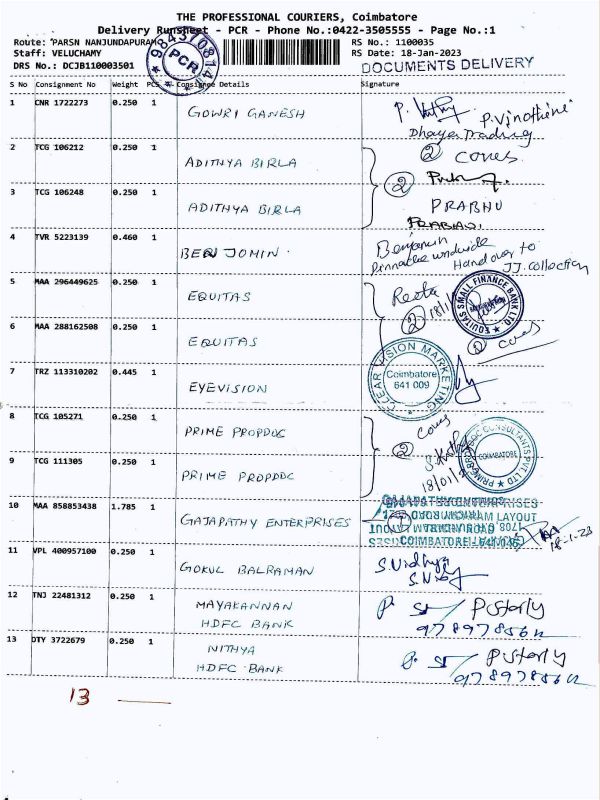 THE PROFESSIONAL COURIERS, Coimbatore
Delivery Runsheet - PCR - Phone No.:0422-3505555 - Page No.:1
Route: PARSN NANJUNDAPURAM RS No.: 1100035
Staff: VELUCHAMY RS Date: 18-Jan-2023
DRS No.: DCJB110003501 DOCUMENTS DELIVERY
PCR
S No Consignment No Weight PCS Consignee Details Signature
1 CNR 1722273 0.250 1 GOWRI GANESH
P. Vinothini
Dhaya Trading
2 TCG 106212 0.250 1 ADITHYA BIRLA
2 coves
3 TCG 106248 0.250 1 ADITHYA BIRLA
2
PRABHU
4 TVR 5223139 0.460 1 BENJOMIN
Benjamin
Hand over to
JJ. collection
5 MAA 296449625 0.250 1 EQUITAS
Reeta
2 18/1
EQUITAS SMALL FINANCE BANK LTD
6 MAA 288162508 0.250 1 EQUITAS
2 coves
7 TRZ 113310202 0.445 1 EYEVISION
CLEAR VISION MARKETING
Coimbatore
641 009
8 TCG 105271 0.250 1 PRIME PROPDOC
2 coves
9 TCG 111305 0.250 1 PRIME PROPDOC
18/01/
COIMBATORE
10 MAA 858853438 1.785 1 GAJAPATHY ENTERPRISES
18-1-23
11 VPL 400957100 0.250 1 GOKUL BALRAMAN
S. Vidhya
12 TNJ 22481312 0.250 1 MAYAKANNAN
HDFC BANK
13 DTY 3722679 0.250 1 NITHYA
HDFC BANK
13